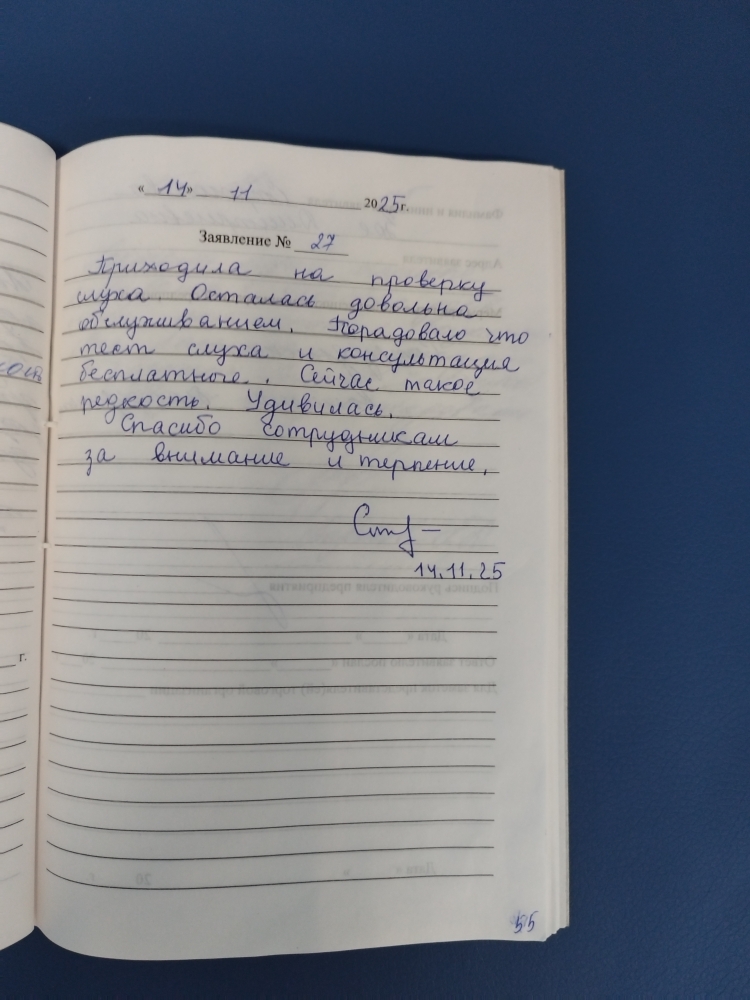 «14» 11 2025г.
Заявление № 27
Приходила на проверку
слуха. Осталась довольна
обслуживанием. Порадовало что
тест слуха и консультация
бесплатные. Сейчас такое
редкость. Удивилась.
Спасибо сотрудникам
за внимание и терпение.
14.11.25
г.
55